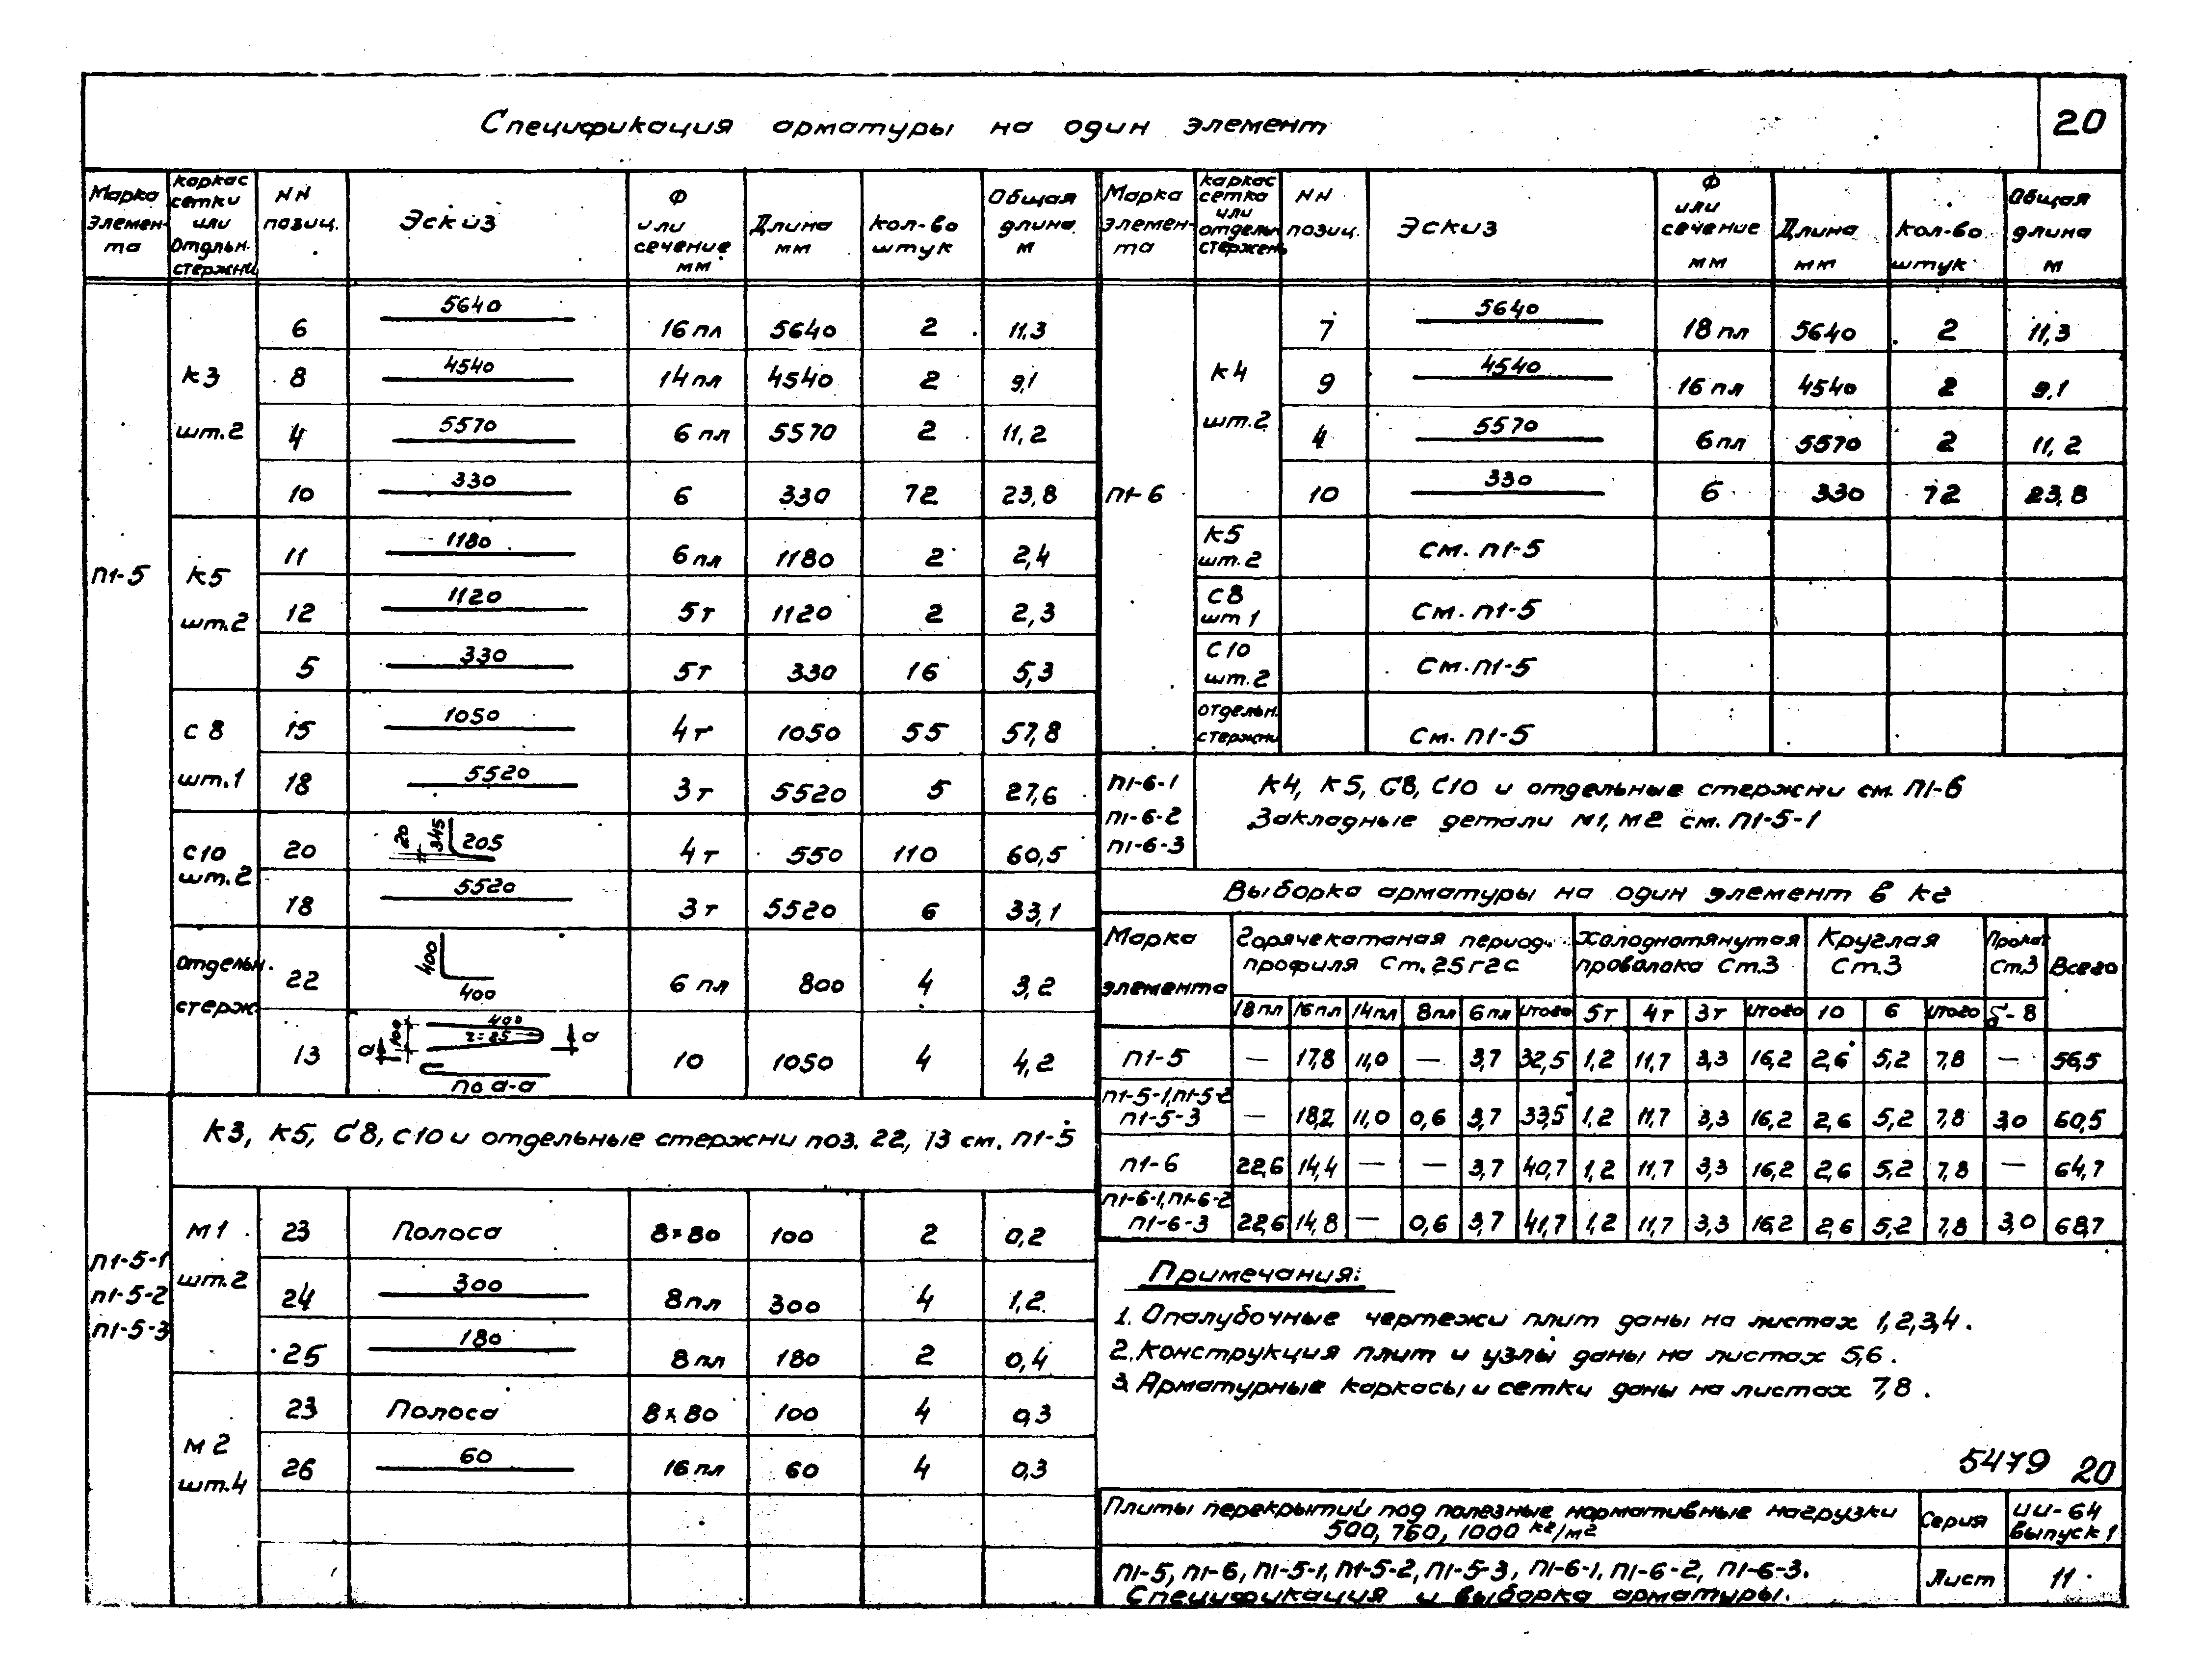 Спецификация арматуры на один элемент
20
Марка элемен-та | каркас сетки или Отдльн. стержни | NN позиц. | Эскиз | Ф или сечение мм | Длина мм | кол-во штук | Общая длина м
П1-5
К3 шт.2
6 | 5640 | 16 пл | 5640 | 2 | 11,3
8 | 4540 | 14 пл | 4540 | 2 | 9,1
4 | 5570 | 6 пл | 5570 | 2 | 11,2
10 | 330 | 6 | 330 | 72 | 23,8
К5 шт.2
11 | 1180 | 6 пл | 1180 | 2 | 2,4
12 | 1120 | 5т | 1120 | 2 | 2,3
5 | 330 | 5т | 330 | 16 | 5,3
С 8 шт.1
15 | 1050 | 4т | 1050 | 55 | 57,8
18 | 5520 | 3т | 5520 | 5 | 27,6
С10 шт.2
20 | 20 345 205 | 4т | 550 | 110 | 60,5
18 | 5520 | 3т | 5520 | 6 | 33,1
Отдельн. стерж.
22 | 400 400 | 6 пл | 800 | 4 | 3,2
13 | а 100 400 r=25 а по а-а | 10 | 1050 | 4 | 4,2
П1-5-1
П1-5-2
П1-5-3
К3, К5, С8, С10 и отдельные стержни поз. 22, 13 см. П1-5
М1 шт.2
23 | Полоса | 8×80 | 100 | 2 | 0,2
24 | 300 | 8пл | 300 | 4 | 1,2
25 | 180 | 8 пл | 180 | 2 | 0,4
М2 шт.4
23 | Полоса | 8×80 | 100 | 4 | 0,3
26 | 60 | 16 пл | 60 | 4 | 0,3
Марка элемен-та | каркас сетка или отдельн стержень | NN позиц. | Эскиз | Ф или сечение мм | Длина мм | кол-во штук | Общая длина м
П1-6
К4 шт.2
7 | 5640 | 18 пл | 5640 | 2 | 11,3
9 | 4540 | 16 пл | 4540 | 2 | 9,1
4 | 5570 | 6пл | 5570 | 2 | 11,2
10 | 330 | 6 | 330 | 72 | 23,8
К5 шт.2 | см. П1-5
С8 шт 1 | см. П1-5
С10 шт.2 | см. П1-5
отдельн. стержни | см. П1-5
П1-6-1
П1-6-2
П1-6-3
К4, К5, С8, С10 и отдельные стержни см. П1-6
Закладные детали М1, М2 см. П1-5-1
Выборка арматуры на один элемент в кг
Марка элемента | Горячекатаная период. профиля Ст. 25г2с | Холоднотянутая проволока Ст.3 | Круглая Ст.3 | Прокат Ст.3 | Всего
18пл | 16пл | 14пл | 8пл | 6пл | Итого | 5т | 4т | 3т | Итого | 10 | 6 | Итого | δ-8
П1-5 | — | 17,8 | 11,0 | — | 3,7 | 32,5 | 1,2 | 11,7 | 3,3 | 16,2 | 2,6 | 5,2 | 7,8 | — | 56,5
П1-5-1, П1-5-2 П1-5-3 | — | 18,2 | 11,0 | 0,6 | 3,7 | 33,5 | 1,2 | 11,7 | 3,3 | 16,2 | 2,6 | 5,2 | 7,8 | 3,0 | 60,5
П1-6 | 22,6 | 14,4 | — | — | 3,7 | 40,7 | 1,2 | 11,7 | 3,3 | 16,2 | 2,6 | 5,2 | 7,8 | — | 64,7
П1-6-1, П1-6-2 П1-6-3 | 22,6 | 14,8 | — | 0,6 | 3,7 | 41,7 | 1,2 | 11,7 | 3,3 | 16,2 | 2,6 | 5,2 | 7,8 | 3,0 | 68,7
Примечания:
1. Опалубочные чертежи плит даны на листах 1,2,3,4.
2. Конструкция плит и узлы даны на листах 5,6.
3. Арматурные каркасы и сетки даны на листах 7,8.
5479 20
Плиты перекрытий под полезные нормативные нагрузки
500, 760, 1000 кг/м2
Серия
ИИ-64
Выпуск 1
П1-5, П1-6, П1-5-1, П1-5-2, П1-5-3, П1-6-1, П1-6-2, П1-6-3.
Спецификация и выборка арматуры.
Лист
11